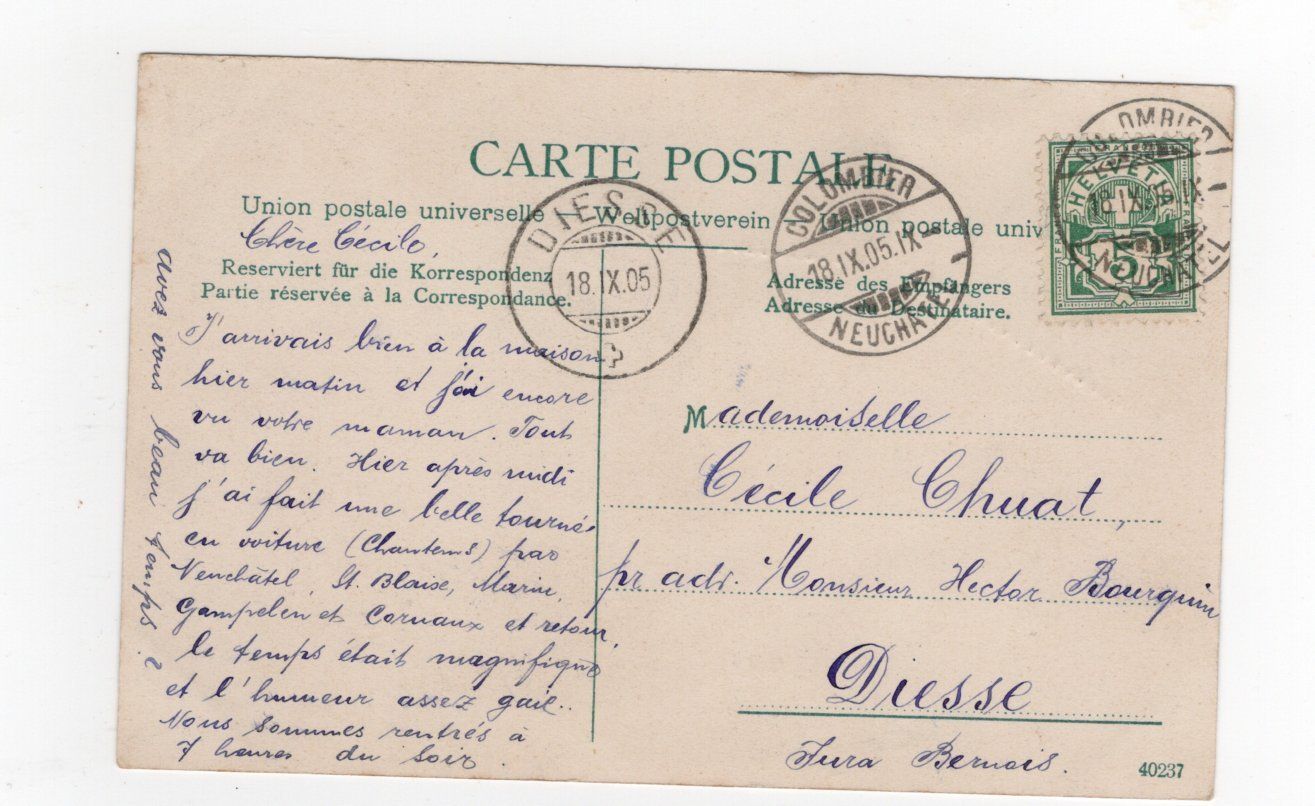 CARTE POSTALE
Union postale universelle – Weltpostverein – Union postale univ
Chère Cécile,
Reserviert für die Korrespondenz
Partie réservée à la Correspondance.
J'arrivais bien à la maison
hier matin et j'ai encore
vu votre maman. Tout
va bien. Hier après midi
j'ai fait une belle tourné
en voiture (Chantems) par
Neuchâtel, St. Blaise, Marin,
Gampelen et Cornaux et retour,
le temps était magnifique
et l'humeur assez gaie..
Nous sommes rentrés à
7 heures du soir.
avez vous beau temps?
DIESSE
18.IX.05
COLOMBIER
18.IX.05.IX-
NEUCHATEL
COLOMBIER
18.IX.05.IX-
NEUCHATEL
HELVETIA
FRANCO
5
Adresse des Empfängers
Adresse du Destinataire.
Mademoiselle
Cécile Chuat,
pr. adr. Monsieur Hector Bourquin
Diesse
Jura Bernois.
40237